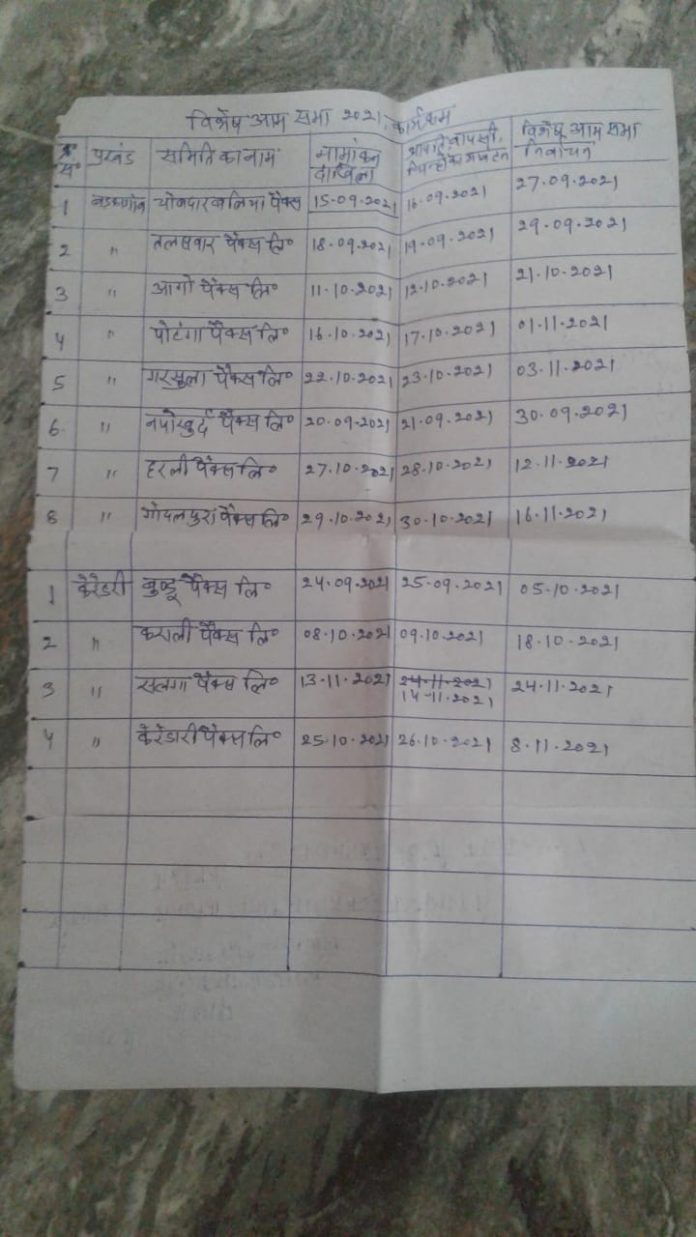 विशेष आम सभा 2021, कार्यक्रम
क्र० सं० प्रखंड समिति का नाम नामांकन दाखिला आपति, वापसी, विशेष आम सभा निर्वाचन
1 बड़कागाँव चोपदारबलिया पैक्स 15.09.2021 16.09.2021 27.09.2021
2 " तलसवार पैक्स लि० 18.09.2021 19.09.2021 29.09.2021
3 " आंगो पैक्स लि० 11.10.2021 12.10.2021 21.10.2021
4 " पोटंगा पैक्स लि० 16.10.2021 17.10.2021 01.11.2021
5 " गरसुला पैक्स लि० 22.10.2021 23.10.2021 03.11.2021
6 " नपोखुर्द पैक्स लि० 20.09.2021 21.09.2021 30.09.2021
7 " हरली पैक्स लि० 27.10.2021 28.10.2021 12.11.2021
8 " गोंदलपुरा पैक्स लि० 29.10.2021 30.10.2021 16.11.2021
1 केरेडारी बुण्डू पैक्स लि० 24.09.2021 25.09.2021 05.10.2021
2 " कराली पैक्स लि० 08.10.2021 09.10.2021 18.10.2021
3 " सलगा पैक्स लि० 13.11.2021 24.11.2021 24.11.2021
14.11.2021
4 " केरेडारी पैक्स लि० 25.10.2021 26.10.2021 8.11.2021